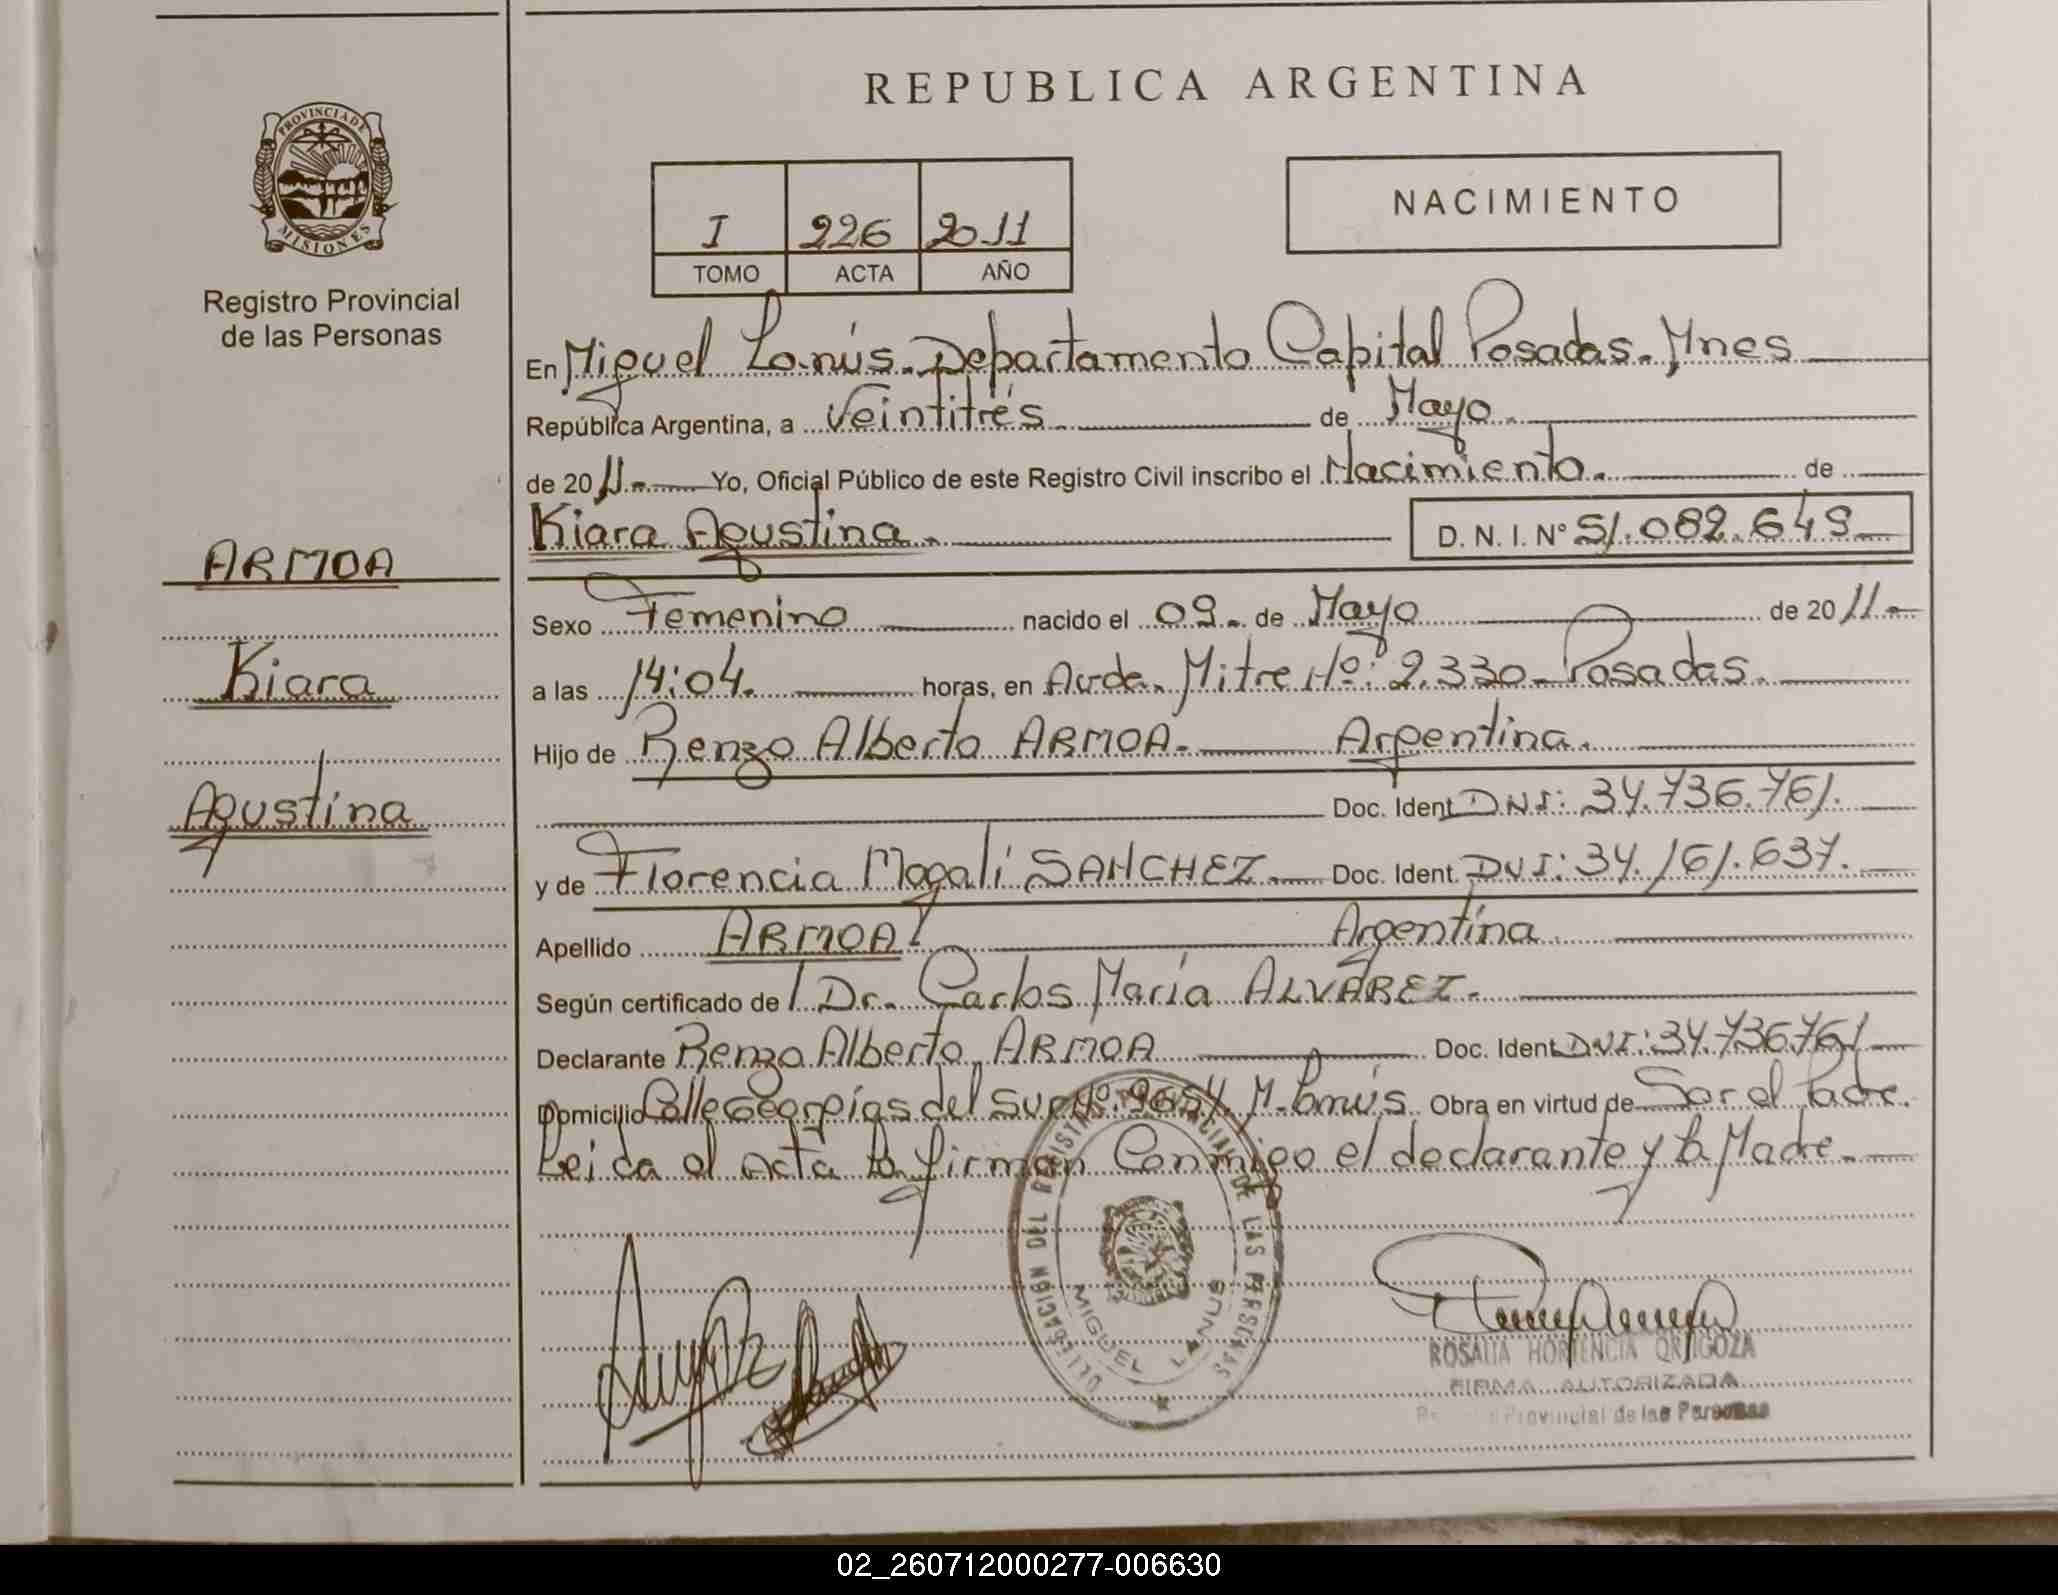 REPUBLICA ARGENTINA
PROVINCIA DE
MISIONES
Registro Provincial
de las Personas
I 226 2011
TOMO ACTA AÑO
NACIMIENTO
En Miguel Lanús. Departamento Capital Posadas. Mnes
República Argentina, a Veintitrés de Mayo
de 2011.- Yo, Oficial Público de este Registro Civil inscribo el Nacimiento. de
Kiara Agustina. D. N. I. N° 51.082.649
ARMOA
Kiara
Agustina
Sexo Femenino nacido el 09. de Mayo de 2011.-
a las 14:04. horas, en Avda. Mitre Nº: 2.330 - Posadas.
Hijo de Renzo Alberto ARMOA.- Argentina.
Doc. Ident. DNI: 34.736.761.
y de Florencia Magalí SANCHEZ. Doc. Ident. DNI: 34.161.637.
Apellido ARMOA Argentina
Según certificado de Dr. Carlos María ALVAREZ.
Declarante Renzo Alberto ARMOA Doc. Ident. DNI: 34.736.761
Domicilio Calle Georgias del Sur Nº: 9654. M. Lanús. Obra en virtud de Ser el Padre.
Leida el acta la firman Conmigo el declarante y la Madre.
DELEGACIÓN DEL REGISTRO PROVINCIAL DE LAS PERSONAS
MIGUEL LANUS
ROSALIA HORTENCIA ORTIGOZA
FIRMA AUTORIZADA
Provincial de las Personas
02_260712000277-006630